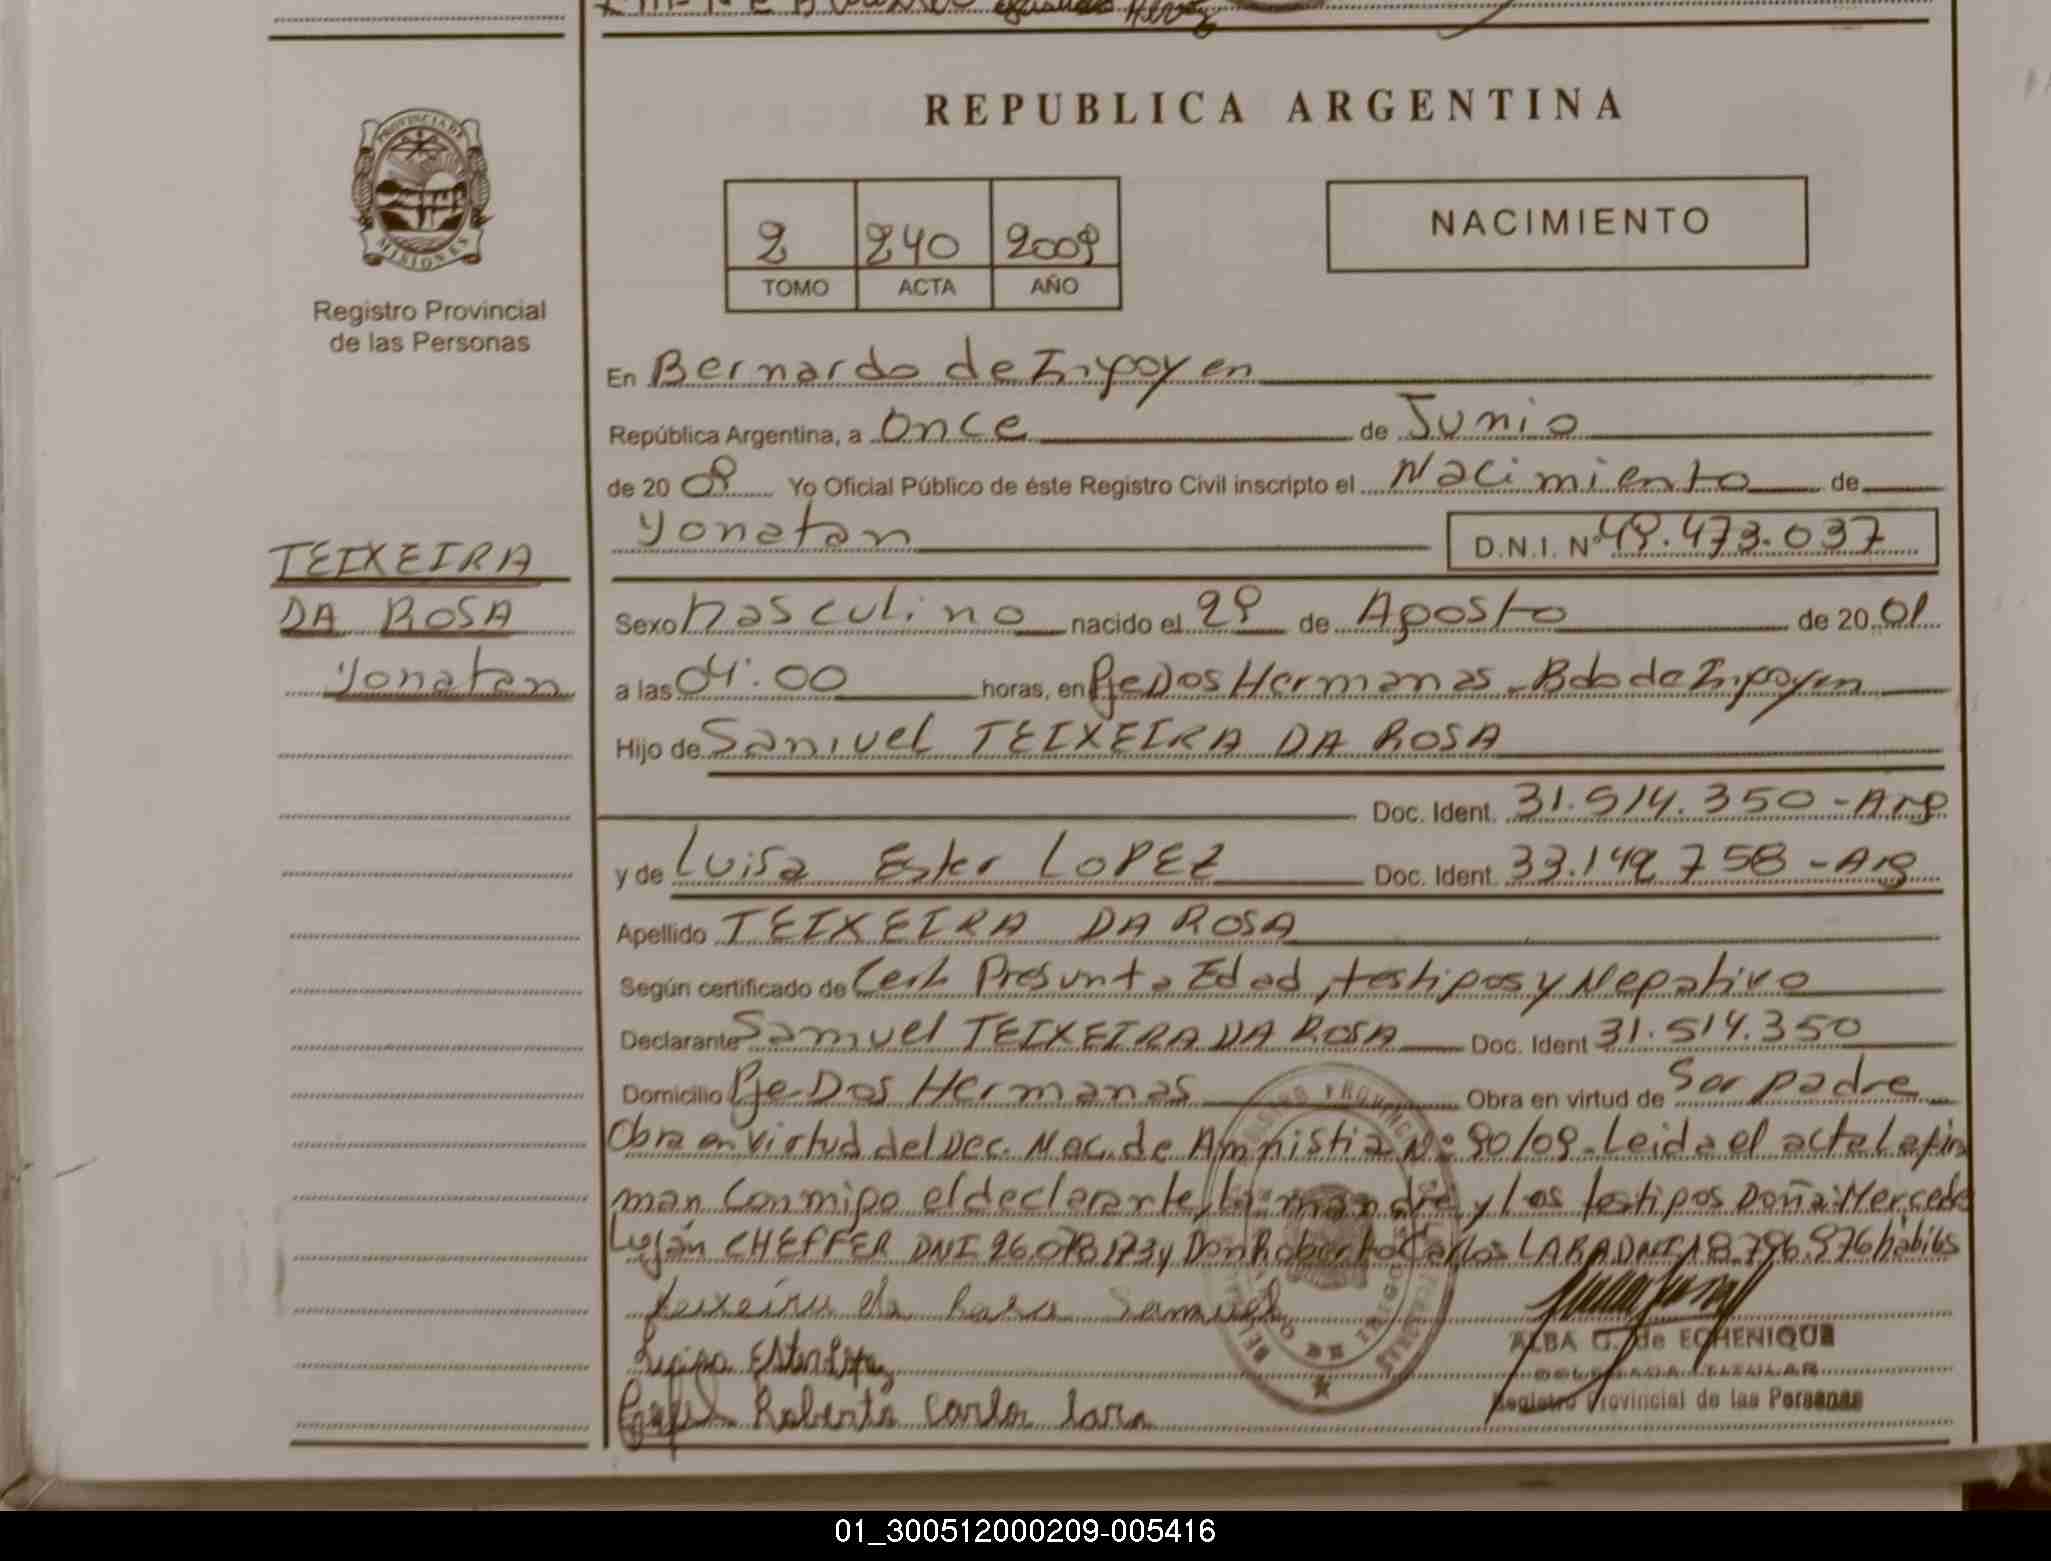 REPUBLICA ARGENTINA
PROVINCIA DE
MISIONES
Registro Provincial
de las Personas
2 240 2009
TOMO ACTA AÑO
NACIMIENTO
En Bernardo de Irigoyen
República Argentina, a Once de Junio
de 20 09 Yo Oficial Público de éste Registro Civil inscripto el Nacimiento de
Yonatan D.N.I. Nº 49.473.037
TEIXEIRA
DA ROSA
Yonatan
Sexo Masculino nacido el 29 de Agosto de 20 01
a las 04:00 horas, en Pje Dos Hermanas - Bdo de Irigoyen
Hijo de Samuel TEIXEIRA DA ROSA
Doc. Ident. 31.514.350 - Arg
y de Luisa Ester LOPEZ Doc. Ident. 33.149.758 - Arg
Apellido TEIXEIRA DA ROSA
Según certificado de Cert. Presunta Edad, testigos y Negativo
Declarante Samuel TEIXEIRA DA ROSA Doc. Ident 31.514.350
Domicilio Pje Dos Hermanas Obra en virtud de Ser padre
Obra en virtud del Dec. Nac. de Amnistia Nº 90/09. Leida el acta la fir
man conmigo el declarante, la madre y los testigos Doña: Mercedes
Luján CHEFFER DNI 26.078.173 y Don Roberto Carlos LARA DNI 18.796.976 hábiles
teixeira da Rosa Samuel
Luisa Ester Lopez
Roberto Carlos Lara
ALBA G. de ECHENIQUE
DELEGADA TITULAR
Registro Provincial de las Personas
01_300512000209-005416